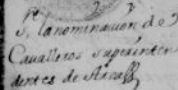 S, lanominacion de
Cavalleros Superinten
dentes de